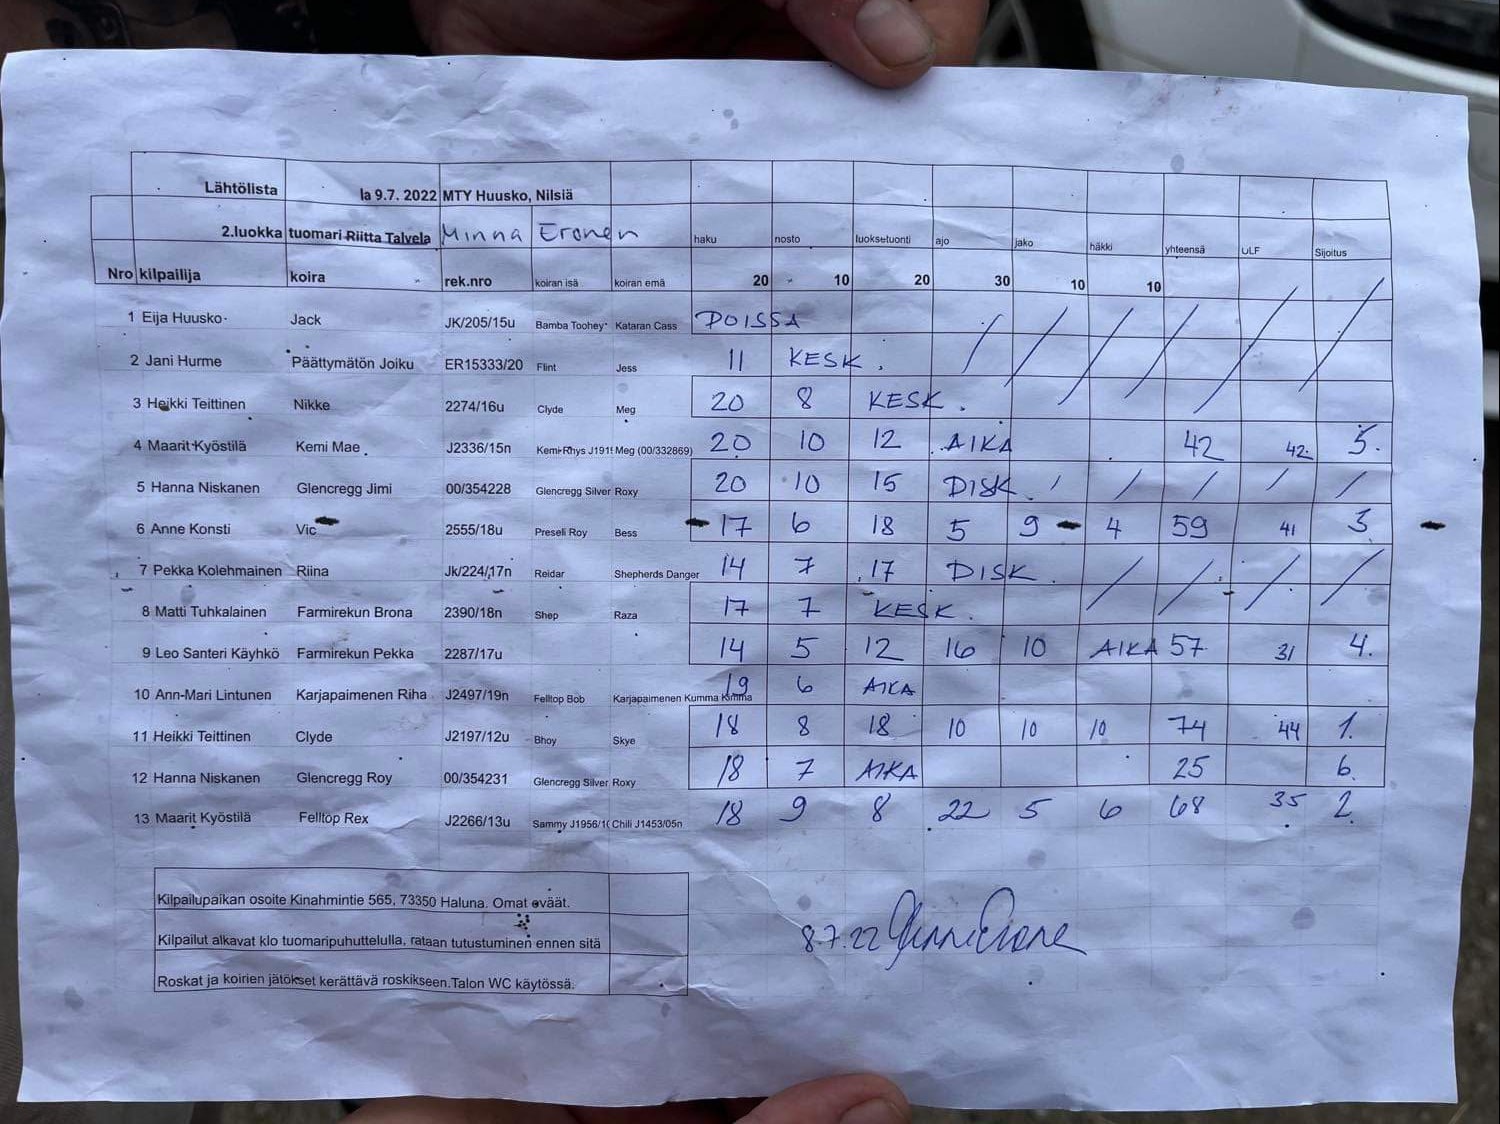 Lähtölista la 9.7. 2022 MTY Huusko, Nilsiä
2.luokka tuomari Riitta Talvela Minna Eronen haku nosto luoksetuonti ajo jako häkki yhteensä ULF Sijoitus
Nro kilpailija koira rek.nro koiran isä koiran emä 20 10 20 30 10 10
1 Eija Huusko Jack JK/205/15u Bamba Toohey Kataran Cass POISSA
2 Jani Hurme Päättymätön Joiku ER15333/20 Flint Jess 11 KESK.
3 Heikki Teittinen Nikke 2274/16u Clyde Meg 20 8 KESK.
4 Maarit Kyöstilä Kemi Mae J2336/15n Kemi-Rhys J191 Meg (00/332869) 20 10 12 AIKA 42 42 5.
5 Hanna Niskanen Glencregg Jimi 00/354228 Glencregg Silver Roxy 20 10 15 DISK.
6 Anne Konsti Vic 2555/18u Preseli Roy Bess 17 6 18 5 9 4 59 41 3.
7 Pekka Kolehmainen Riina Jk/224/17n Reidar Shepherds Danger 14 7 17 DISK.
8 Matti Tuhkalainen Farmirekun Brona 2390/18n Shep Raza 17 7 KESK.
9 Leo Santeri Käyhkö Farmirekun Pekka 2287/17u 14 5 12 16 10 AIKA 57 31 4.
10 Ann-Mari Lintunen Karjapaimenen Riha J2497/19n Felltop Bob Karjapaimenen Kumma Kimma 19 6 AIKA
11 Heikki Teittinen Clyde J2197/12u Bhoy Skye 18 8 18 10 10 10 74 44 1.
12 Hanna Niskanen Glencregg Roy 00/354231 Glencregg Silver Roxy 18 7 AIKA 25 6.
13 Maarit Kyöstilä Felltop Rex J2266/13u Sammy J1956/1 Chili J1453/05n 18 9 8 22 5 6 68 35 2.
Kilpailupaikan osoite Kinahmintie 565, 73350 Haluna. Omat eväät.
Kilpailut alkavat klo tuomaripuhuttelulla, rataan tutustuminen ennen sitä
Roskat ja koirien jätökset kerättävä roskikseen.Talon WC käytössä.
8.7.22 Minna Eronen